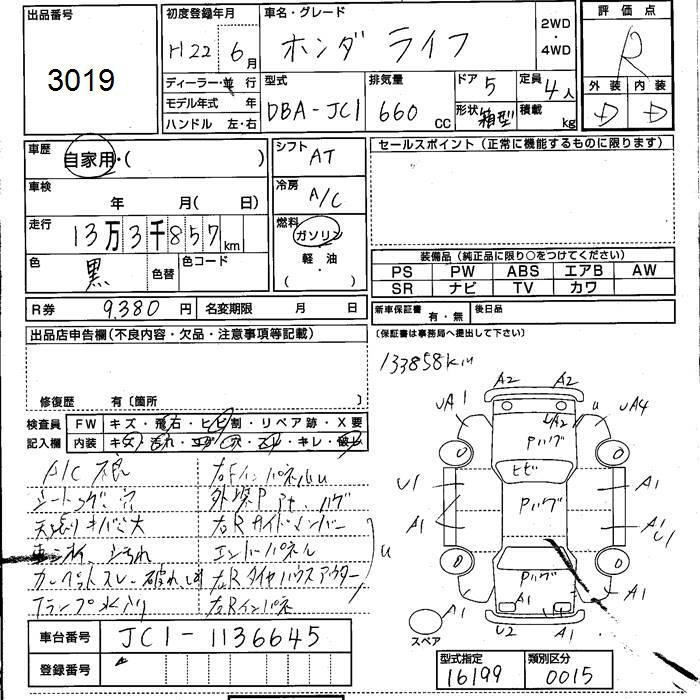 出品番号
3019
初度登録年月
H22 6月
車名・グレード
ホンダ ライフ
2WD
・
4WD
評価点
R
外装 内装
D D
ディーラー・並行
モデル年式 年
ハンドル 左・右
型式
DBA-JC1
排気量
660 cc
ドア 5
形状 箱型
定員 4人
積載 kg
車歴
自家用・( )
シフト AT
セールスポイント(正常に機能するものに限ります)
車検
年 月( 日)
冷房
A/C
走行
13万3千857km
燃料
ガソリン
軽・油
( )
色
黒 色替
色コード
装備品(純正品に限り○をつけてください)
PS PW ABS エアB AW
SR ナビ TV カワ
R券 9,380円
名変期限 月 日
新車保証書 有・無
後日品
(保証書は事務局へ提出して下さい)
出品店申告欄(不良内容・欠品・注意事項等記載)
133858km
修復歴 有〔箇所 〕
検査員
記入欄
FW キズ・飛石・ヒビ割・リペア跡・X要
内装 キズ・汚れ・コゲ・穴・ヌレ・キレ・破レ
A/C不良
シートコゲ、穴
右Rサイドメンバー
エンドパネル
右Rタイヤハウスアウター
右Rインパネ
u
A2 A2
UA1
UA2
u
UA4
Pハゲ
ヒビ
Pハゲ
U1
A1
A1
A1
U1
Pハゲ
A1
A1
U2
A1
スペア
車台番号 JC1-1136645
登録番号
型式指定
16199
類別区分
0015